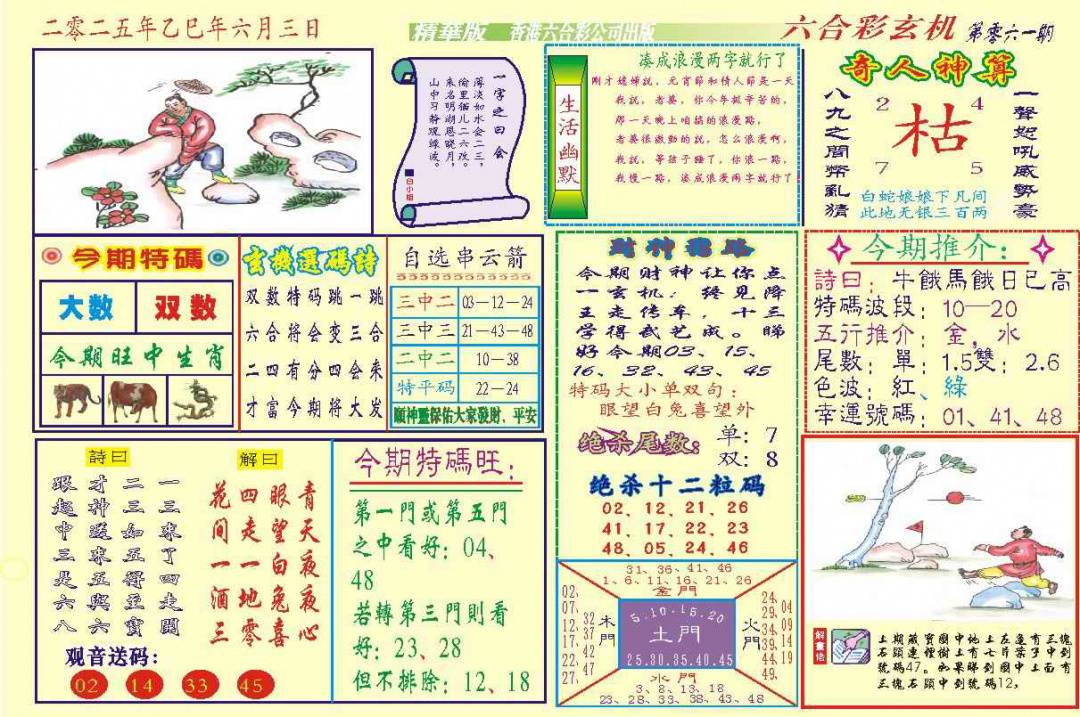 二零二五年乙巳年六月三日
精華版 香港六合彩公司出版
六合彩玄机 第零六一期
一字之曰会
薄淡如水会二三,
偷里猫儿二六改。
来名明湖恩晓月,
山中习静观绿波。
白小姐
生活幽默
凑成浪漫两字就行了
剛才媳婦説,元宵節和情人節是一天
我説,老婆,你今年挺辛苦的,
那一天晚上咱搞的浪漫點,
老婆很激動的説,怎么浪漫啊,
我説,等孩子睡了,你浪一點,
我慢一點,湊成浪漫兩字就行了
奇人神算
八九之間幣亂猜
2 4
枯
7 5
一聲恕吼威勢豪
白蛇娘娘下凡间
此地无银三百两
今期特碼
大数 双数
今期旺中生肖
玄機選碼詩
双数特码跳一跳
六合将会变三合
二四有分四会来
才富今期将大发
自选串云箭
三中二 03—12—24
三中三 21—43—48
二中二 10—38
特平码 22—24
順神靈保佑大家發財、平安
財神指路
今期财神让你点
一玄机:终见降
王走传车,十三
学得武艺成。睇
好今期03、15、
16、32、43、45
特码大小单双句:
眼望白兔喜望外
绝杀尾数: 单:7
双:8
绝杀十二粒码
02、12、21、26
41、17、22、23
48、05、24、46
今期推介:
詩曰:牛餓馬餓日已高
特碼波段:10—20
五行推介:金,水
尾數:單:1.5雙:2.6
色波:紅、綠
幸運號碼:01、41、48
詩曰
一三來了四走開
二三如五得至寶
才神送来五與六
跟起中三是六八
解曰
青天夜夜心
眼望白兔喜
四走一地零
花间一酒三
观音送码:
02 14 33 45
今期特碼旺:
第一門或第五門
之中看好:04、
48
若轉第三門則看
好:23、28
但不排除:12、18
31、36、41、46
1、6、11、16、21、26
金門
02、07、12、17、22、27、
32、37、42、47
木門
5.10.15.20
土門
25.30.35.40.45
火門
24、29、34、39、44、49、
04、09、14、19
水門
3、8、13、18
23、28、33、38、43、48
解畫佬
上期藏寶圖中地上左邊有三塊
石頭連樹上有七片葉子中到
號碼47。如果睇到圖中上面有
三塊石頭中到號碼12,